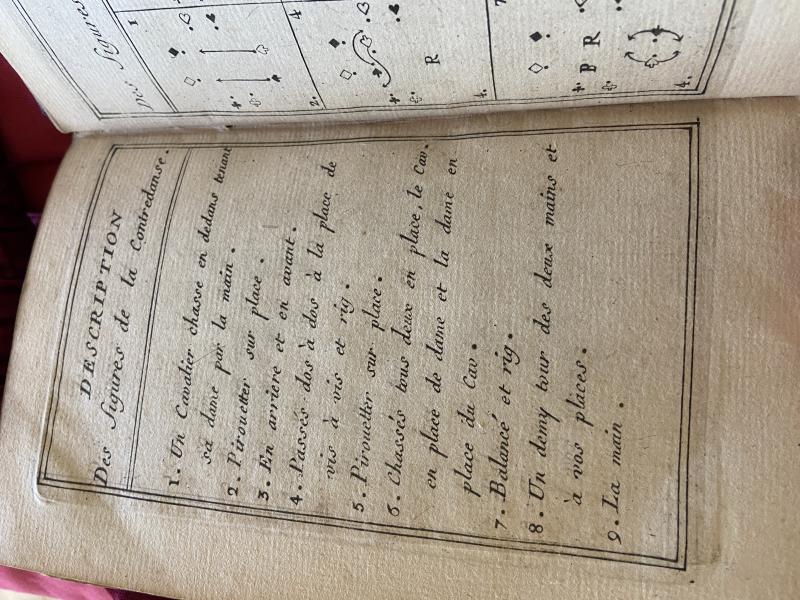 DESCRIPTION
Des figures de la Contredanse.
1. Un Cavalier chasse en dedans tenant
sa dame par la main.
2. Pirouetter sur place.
3. En arriere et en avant.
4. Passés dos à dos à la place de
vis à vis et rig.
5. Pirouetter sur place.
6. Chassés tous deux en place, le Cav.
en place de dame et la dame en
place du Cav.
7. Balancé et rig.
8. Un demy tour des deux mains et
à vos places.
9. La main.
Des figures
1
2.
4
R
4.
7
B R
4.